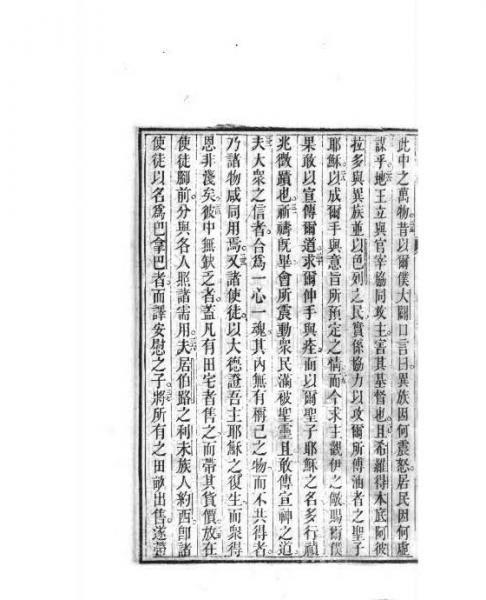 此中之萬物昔以爾僕大闢口言曰異族因何震怒居民因何虛
謀乎地王立與官宰協同攻主害其基督也且希羅得本底阿彼
拉多與異族並以色列之民實係協力以攻爾所傅油者之聖子
耶穌以成爾手與意旨所預定之情而今求主觀伊之儆賜爾僕
果敢以宣傳爾道求爾伸手與痊而以爾聖子耶穌之名多行禎
兆微蹟也祈禱既畢會所震動衆民滿被聖靈且敢傳宣神之道
夫大衆之信者台爲一心一魂其內無有稱己之物而不共得者
乃諸物咸同用焉又諸使徒以大德證吾主耶穌之復生而衆得
恩非淺矣彼中無缺乏者蓋凡有田宅者售之而帶其貨價放在
使徒腳前分與各人照諸需用夫居伯路之利未族人約西卽諸
使徒以名爲巴拿巴者而譯安慰之子將所有之田畝出售遂帶